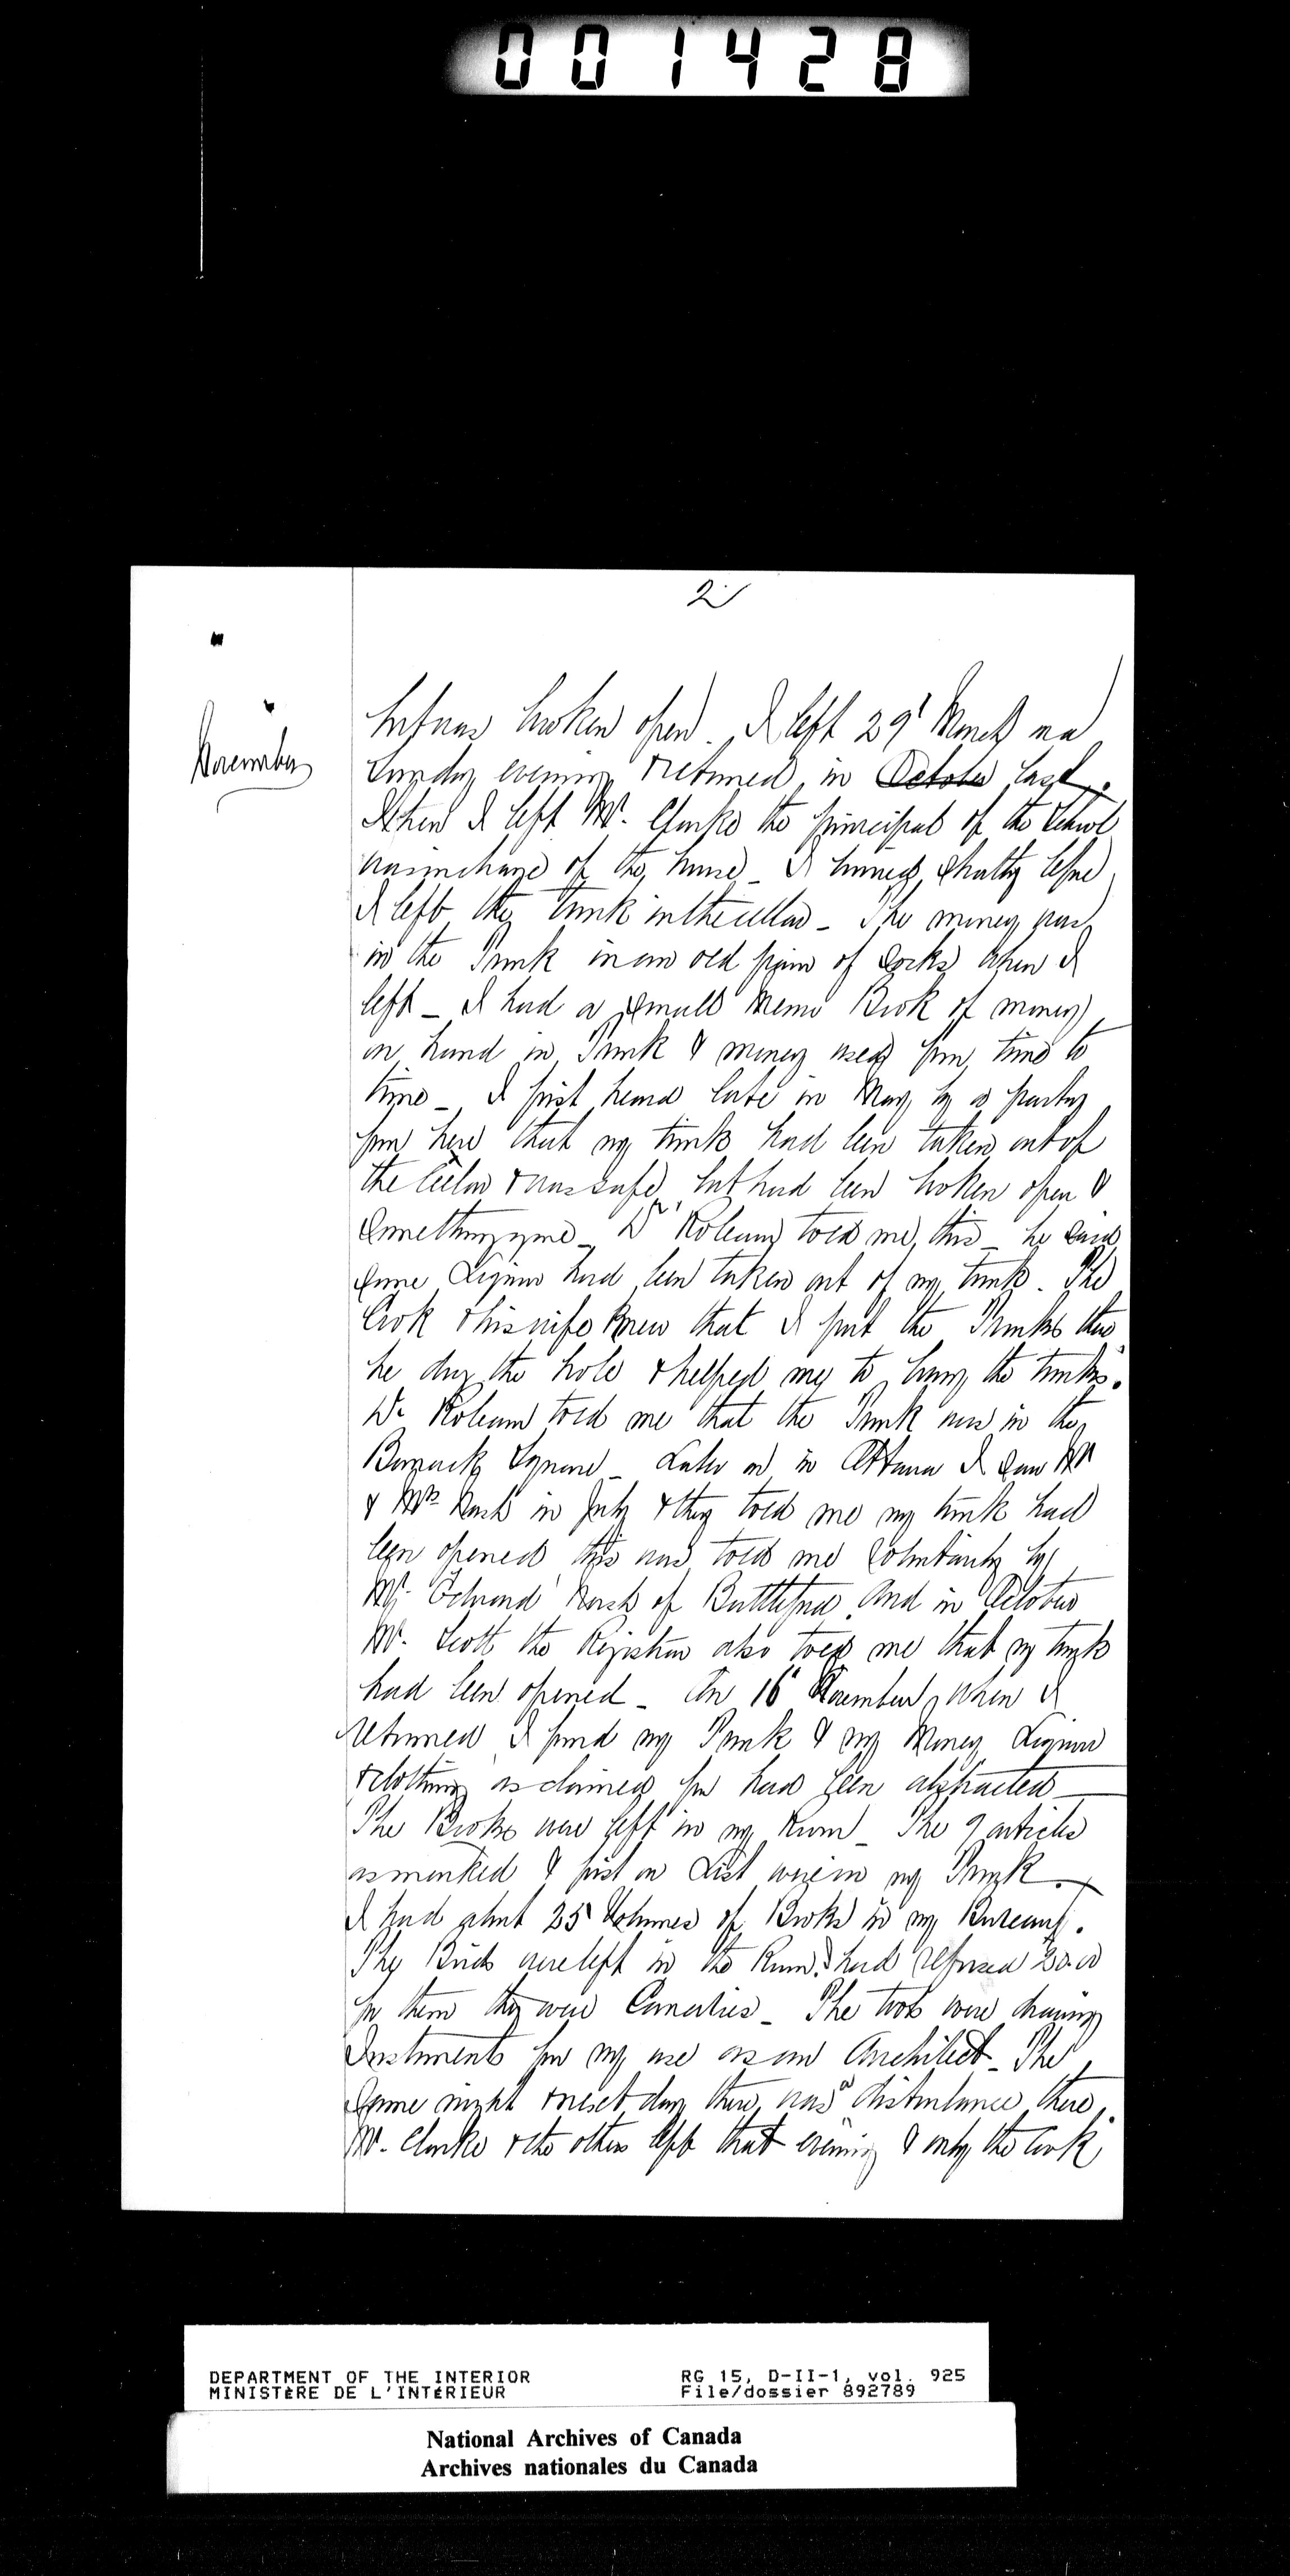 001428
2
November
broken open. I left 29 March on a
Sunday evening & returned in October last.
When I left Mr. Clarke the principal of the School
was in charge of the house_ I buried shortly before
I left the Trunk in the cellar_ The money was
in the Trunk in an old pair of Socks when I
left_ I had a small Memo Book of money
on hand in Trunk & money used from time to
time_ I first heard late in May by a party
from here that my trunk had been taken out of
the Cellar & was safe but had been broken open &
Something gone_ Dr told me this_ he said
some Liquor had been taken out of my trunk. The
Cook & his wife knew that I put the Trunks there
he dug the hole & helped me to bury the trunks.
Dr told me that the Trunk was in the
Barrack Square_ Later on in Ottawa I saw Mr
& Mrs Nash in July & they told me my trunk had
been opened this was told me voluntarily by
Mr. Edmond Nash of Battleford and in October
Mr. Scott the Registrar also told me that my trunk
had been opened_ On 16 November when I
returned I found my Trunk & my Money Liquor
& clothing as claimed for had been abstracted_
The Books were left in my Room_ The 9 articles
as marked & first on List were in my Trunk.
I had about 25 Volumes of Books in my Bureau.
The Birds were left in the Room I had refused 20.00
for them they were Canaries_ The tools were drawing
Instruments for my use as an Architect_ The
same night & next day there was a disturbance there.
Mr. Clarke & the others left that evening & only the Cook
DEPARTMENT OF THE INTERIOR
MINISTÈRE DE L'INTÉRIEUR
RG 15, D-II-1, vol. 925
File/dossier 892789
National Archives of Canada
Archives nationales du Canada